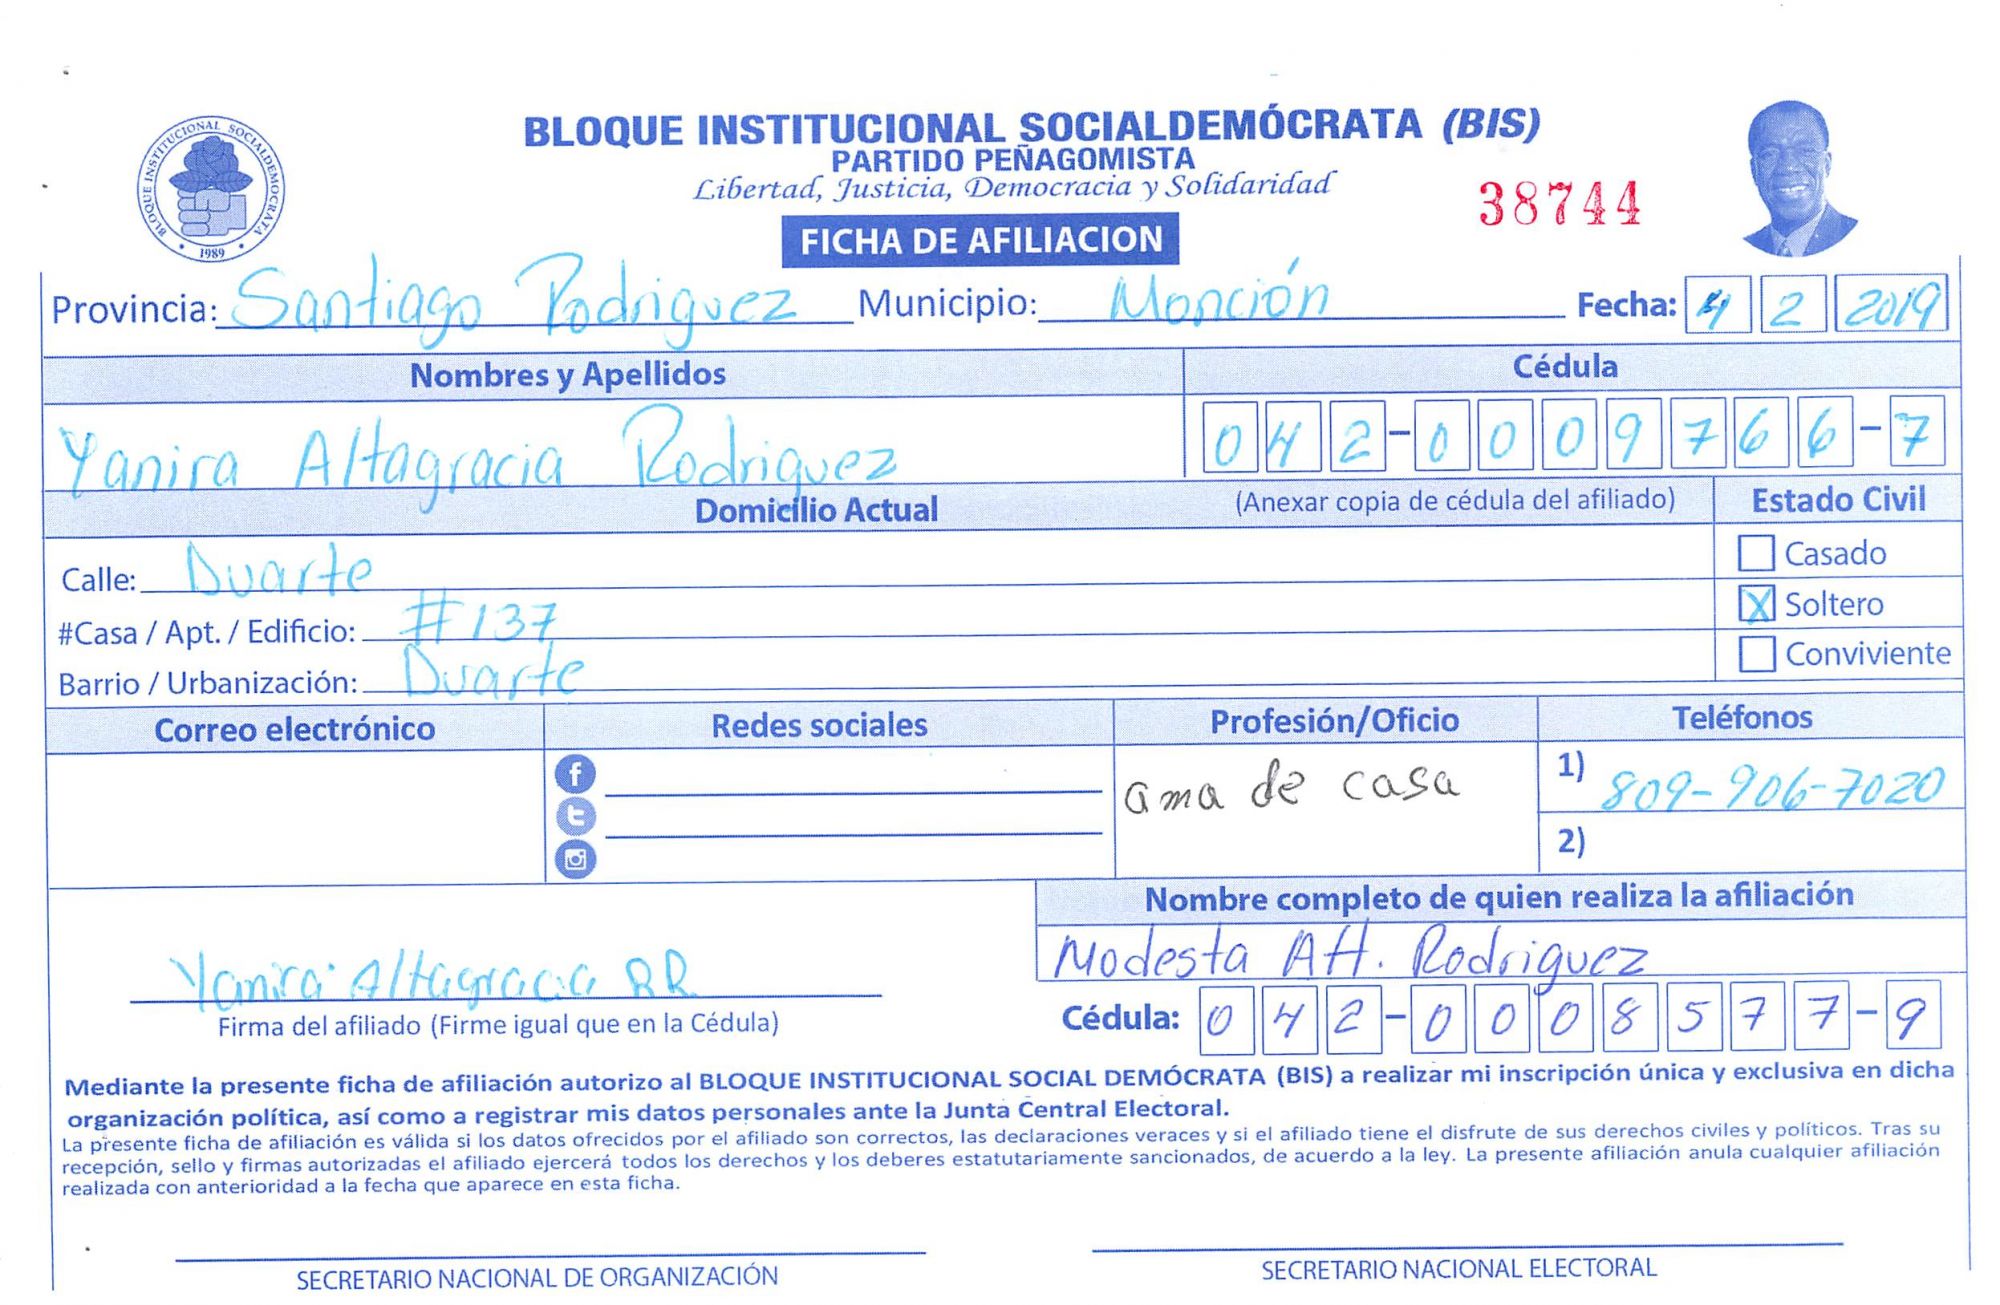 BLOQUE INSTITUCIONAL SOCIALDEMÓCRATA
1989
BLOQUE INSTITUCIONAL SOCIALDEMÓCRATA (BIS)
PARTIDO PEÑAGOMISTA
Libertad, Justicia, Democracia y Solidaridad
38744
FICHA DE AFILIACION
Provincia: Santiago Rodriguez Municipio: Monción Fecha: 4 2 2019
Nombres y Apellidos Cédula
Yanira Altagracia Rodriguez 042-0009766-7
Domicilio Actual (Anexar copia de cédula del afiliado) Estado Civil
Calle: Duarte
Casado
#Casa / Apt. / Edificio: #137
X Soltero
Barrio / Urbanización: Duarte
Conviviente
Correo electrónico Redes sociales Profesión/Oficio Teléfonos
ama de casa 1) 809-906-7020
2)
Nombre completo de quien realiza la afiliación
Modesta Alt. Rodriguez
Yanira Altagracia RR
Firma del afiliado (Firme igual que en la Cédula) Cédula: 042-0008577-9
Mediante la presente ficha de afiliación autorizo al BLOQUE INSTITUCIONAL SOCIAL DEMÓCRATA (BIS) a realizar mi inscripción única y exclusiva en dicha
organización política, así como a registrar mis datos personales ante la Junta Central Electoral.
La presente ficha de afiliación es válida si los datos ofrecidos por el afiliado son correctos, las declaraciones veraces y si el afiliado tiene el disfrute de sus derechos civiles y políticos. Tras su
recepción, sello y firmas autorizadas el afiliado ejercerá todos los derechos y los deberes estatutariamente sancionados, de acuerdo a la ley. La presente afiliación anula cualquier afiliación
realizada con anterioridad a la fecha que aparece en esta ficha.
SECRETARIO NACIONAL DE ORGANIZACIÓN SECRETARIO NACIONAL ELECTORAL